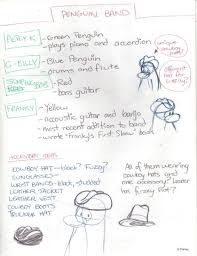 PENGUIN BAND
PETEY K
- Green Penguin
- plays piano and accordion
unique cowboy hats?
G-BILLY
- Blue Penguin
- drums and flute
different hat for G-Billy?
STOMPIN' BOB
- Red
- bass guitar
FRANKY
- Yellow
- acoustic guitar and banjo
- most recent addition to band
- wrote "Franky's First Show" book
ACCESSORY IDEAS
COWBOY HAT - black? Fuzzy?
SUNGLASSES
WRIST BANDS - black, studded
LEATHER JACKET
LEATHER VEST
COWBOY BOOTS
TRUCKER HAT
All of them wearing
cowboy hats and
one accessory? under
hat furry flat?
© Disney